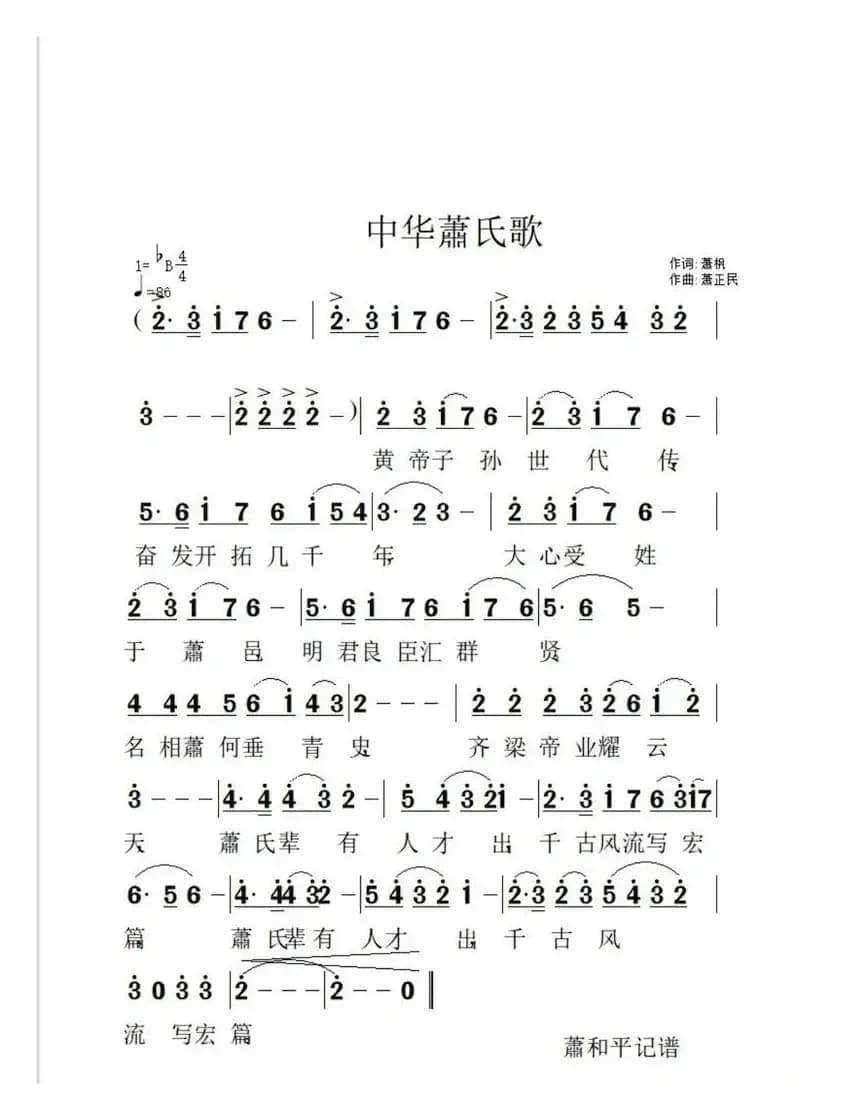 中华蕭氏歌
1=♭B 4/4
作词:萧枫
作曲:萧正民
♩=86
(2̇· 3̇ 1̇ 7 6 – | 2̇· 3̇ 1̇ 7 6 – | 2̇· 3̇ 2̇ 3̇ 5̇ 4̇ 3̇ 2̇ |
3̇ – – – | 2̇ 2̇ 2̇ 2̇ – ) | 2̇ 3̇ 1̇ 7 6 – | 2̇ 3̇ 1̇ 7 6 – |
黄 帝子 孙 世 代 传
5· 6 1̇ 7 6 1̇ 5 4 | 3· 2 3 – | 2̇ 3̇ 1̇ 7 6 – |
奋 发开 拓 几 千 年 大 心受 姓
2̇ 3̇ 1̇ 7 6 – | 5· 6 1̇ 7 6 1̇ 7 6 | 5· 6 5 – |
于 蕭 邑 明 君良 臣汇 群 贤
4 4 4 5 6 1̇ 4 3 | 2 – – – | 2̇ 2̇ 2̇ 3̇ 2̇ 6 1̇ 2̇ |
名 相蕭 何垂 青 史 齐 梁 帝 业耀 云
3̇ – – – | 4̇· 4̇ 4̇ 3̇ 2̇ – | 5̇ 4̇ 3̇ 2̇ 1̇ – | 2̇· 3̇ 1̇ 7 6 3̇ 1̇ 7
天 蕭 氏辈 有 人 才 出 千 古风流写 宏
6· 5 6 – | 4̇· 4̇ 4̇ 3̇ 2̇ – | 5̇ 4̇ 3̇ 2̇ 1̇ – | 2̇· 3̇ 2̇ 3̇ 5̇ 4̇ 3̇ 2̇ |
篇 蕭 氏辈有 人才 出 千 古 风
3̇ 0 3̇ 3̇ | 2̇ – – – | 2̇ – – 0 ‖
流 写宏 篇
蕭和平记谱